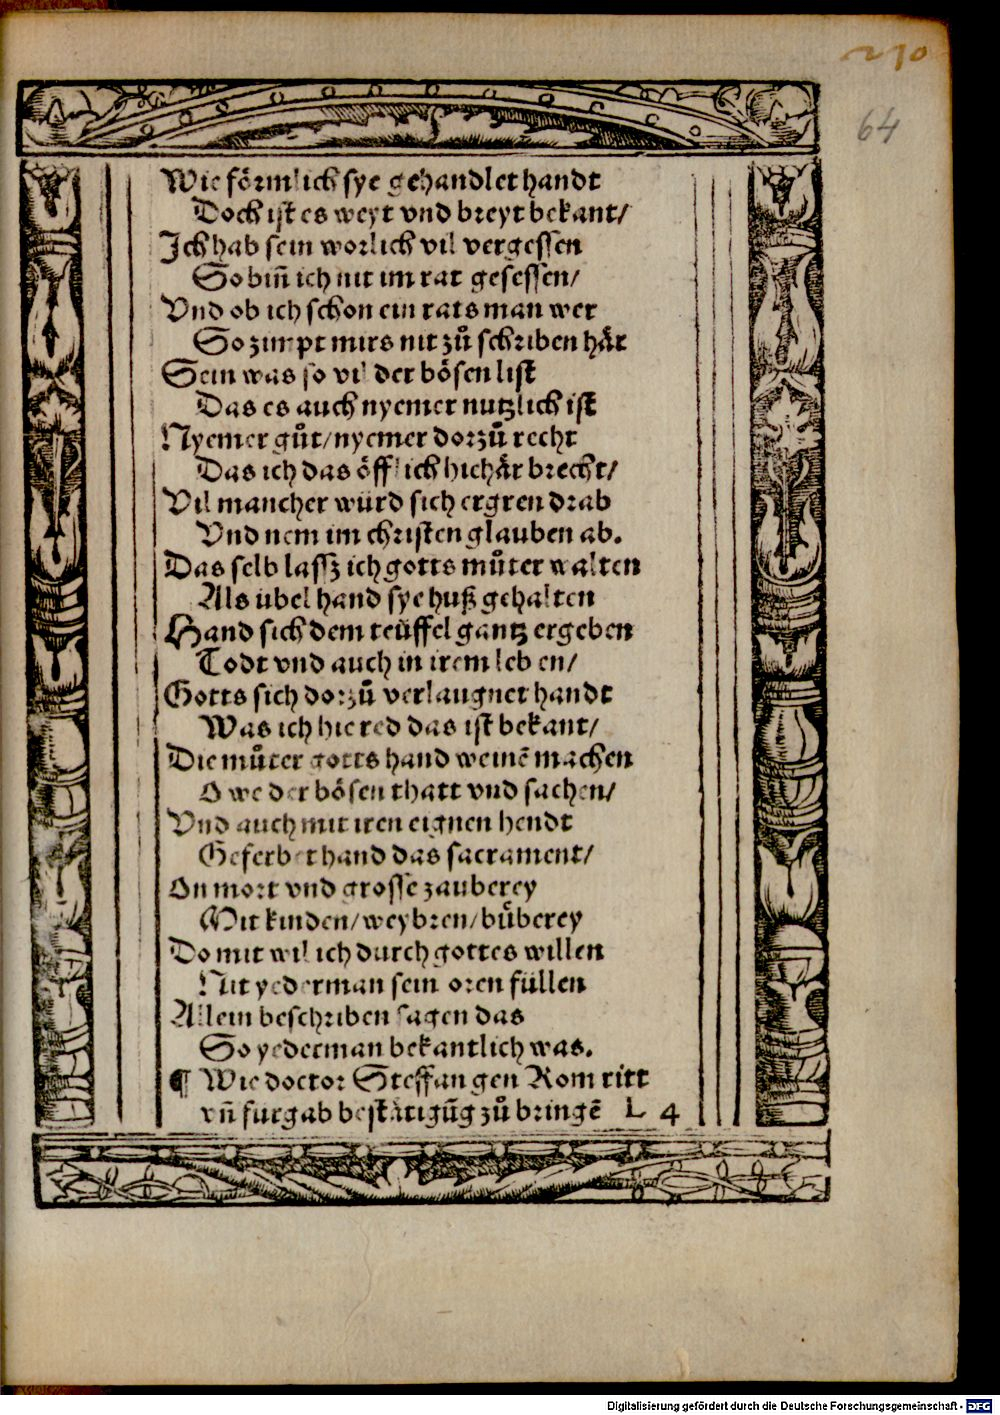 210
64
Wie förmlich sye gehandlet handt
Doch ist es weyt vnd breyt bekant/
Ich hab sein worlich vil vergessen
So biñ ich nit im rat gesessen/
Vnd ob ich schon ein rats man wer
So zimpt mirs nit zů schriben här
Sein was so vil der bösen list
Das es auch nyemer nutzlich ist
Nyemer gůt/nyemer dorzů recht
Das ich das öfflich hiehär brecht/
Vil mancher würd sich ergren drab
Vnd nem im christen glauben ab.
Das selb lassz ich gotts můter walten
Als übel hand sye huß gehalten
Hand sich dem teüffel gantz ergeben
Todt vnd auch in irem leben/
Gotts sich dorzů verlaugnet handt
Was ich hie red das ist bekant/
Die můter gotts hand weinē machen
O we der bösen thatt vnd sachen/
Vnd auch mit iren eignen hendt
Geferbet hand das sacrament/
On mort vnd grosse zauberey
Mit kinden/weybren/büberey
Do mit wil ich durch gottes willen
Nit yederman sein oren füllen
Allein beschriben sagen das
So yederman bekantlich was.
¶ Wie doctor Steffan gen Rom ritt
vñ furgab bestätigūg zů bringē L 4
Digitalisierung gefördert durch die Deutsche Forschungsgemeinschaft - DFG